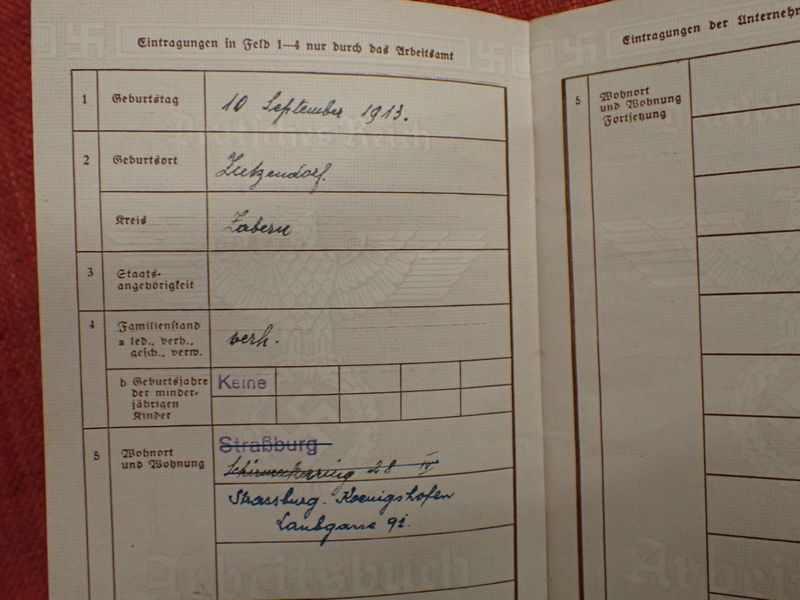 Eintragungen in Feld 1—4 nur durch das Arbeitsamt
1 Geburtstag 10 September 1913.
2 Geburtsort Lutzendorf.
Kreis Zabern
3 Staats-
angehörigkeit
4 Familienstand
a led., verh.,
gesch., verw.
verh.
b Geburtsjahre
der minder-
jährigen
Kinder
Keine
5 Wohnort
und Wohnung
Straßburg
28 IV
Strassburg-Koenigshofen
Laubgasse 9i.
Deutsches Reich
Arbeitsbuch
Eintragungen der Unternehm
5 Wohnort
und Wohnung
Fortsetzung